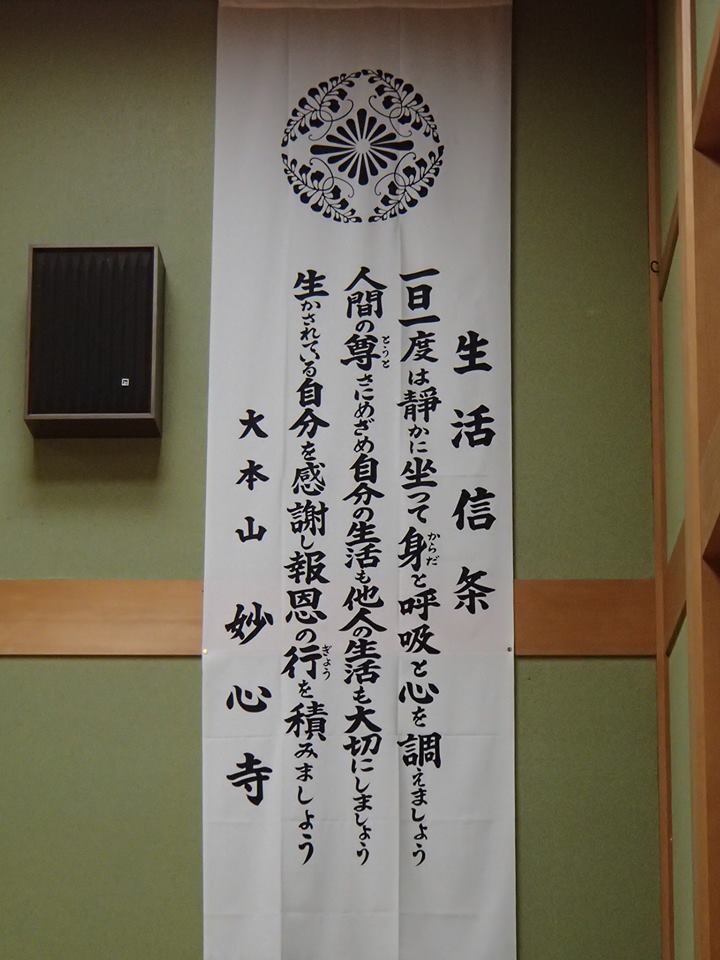 生活信条
一日一度は静かに坐って身と呼吸と心を調えましょう
からだ
人間の尊さにめざめ自分の生活も他人の生活も大切にしましょう
とうと
生かされている自分を感謝し報恩の行を積みましょう
ぎょう
大本山 妙心寺